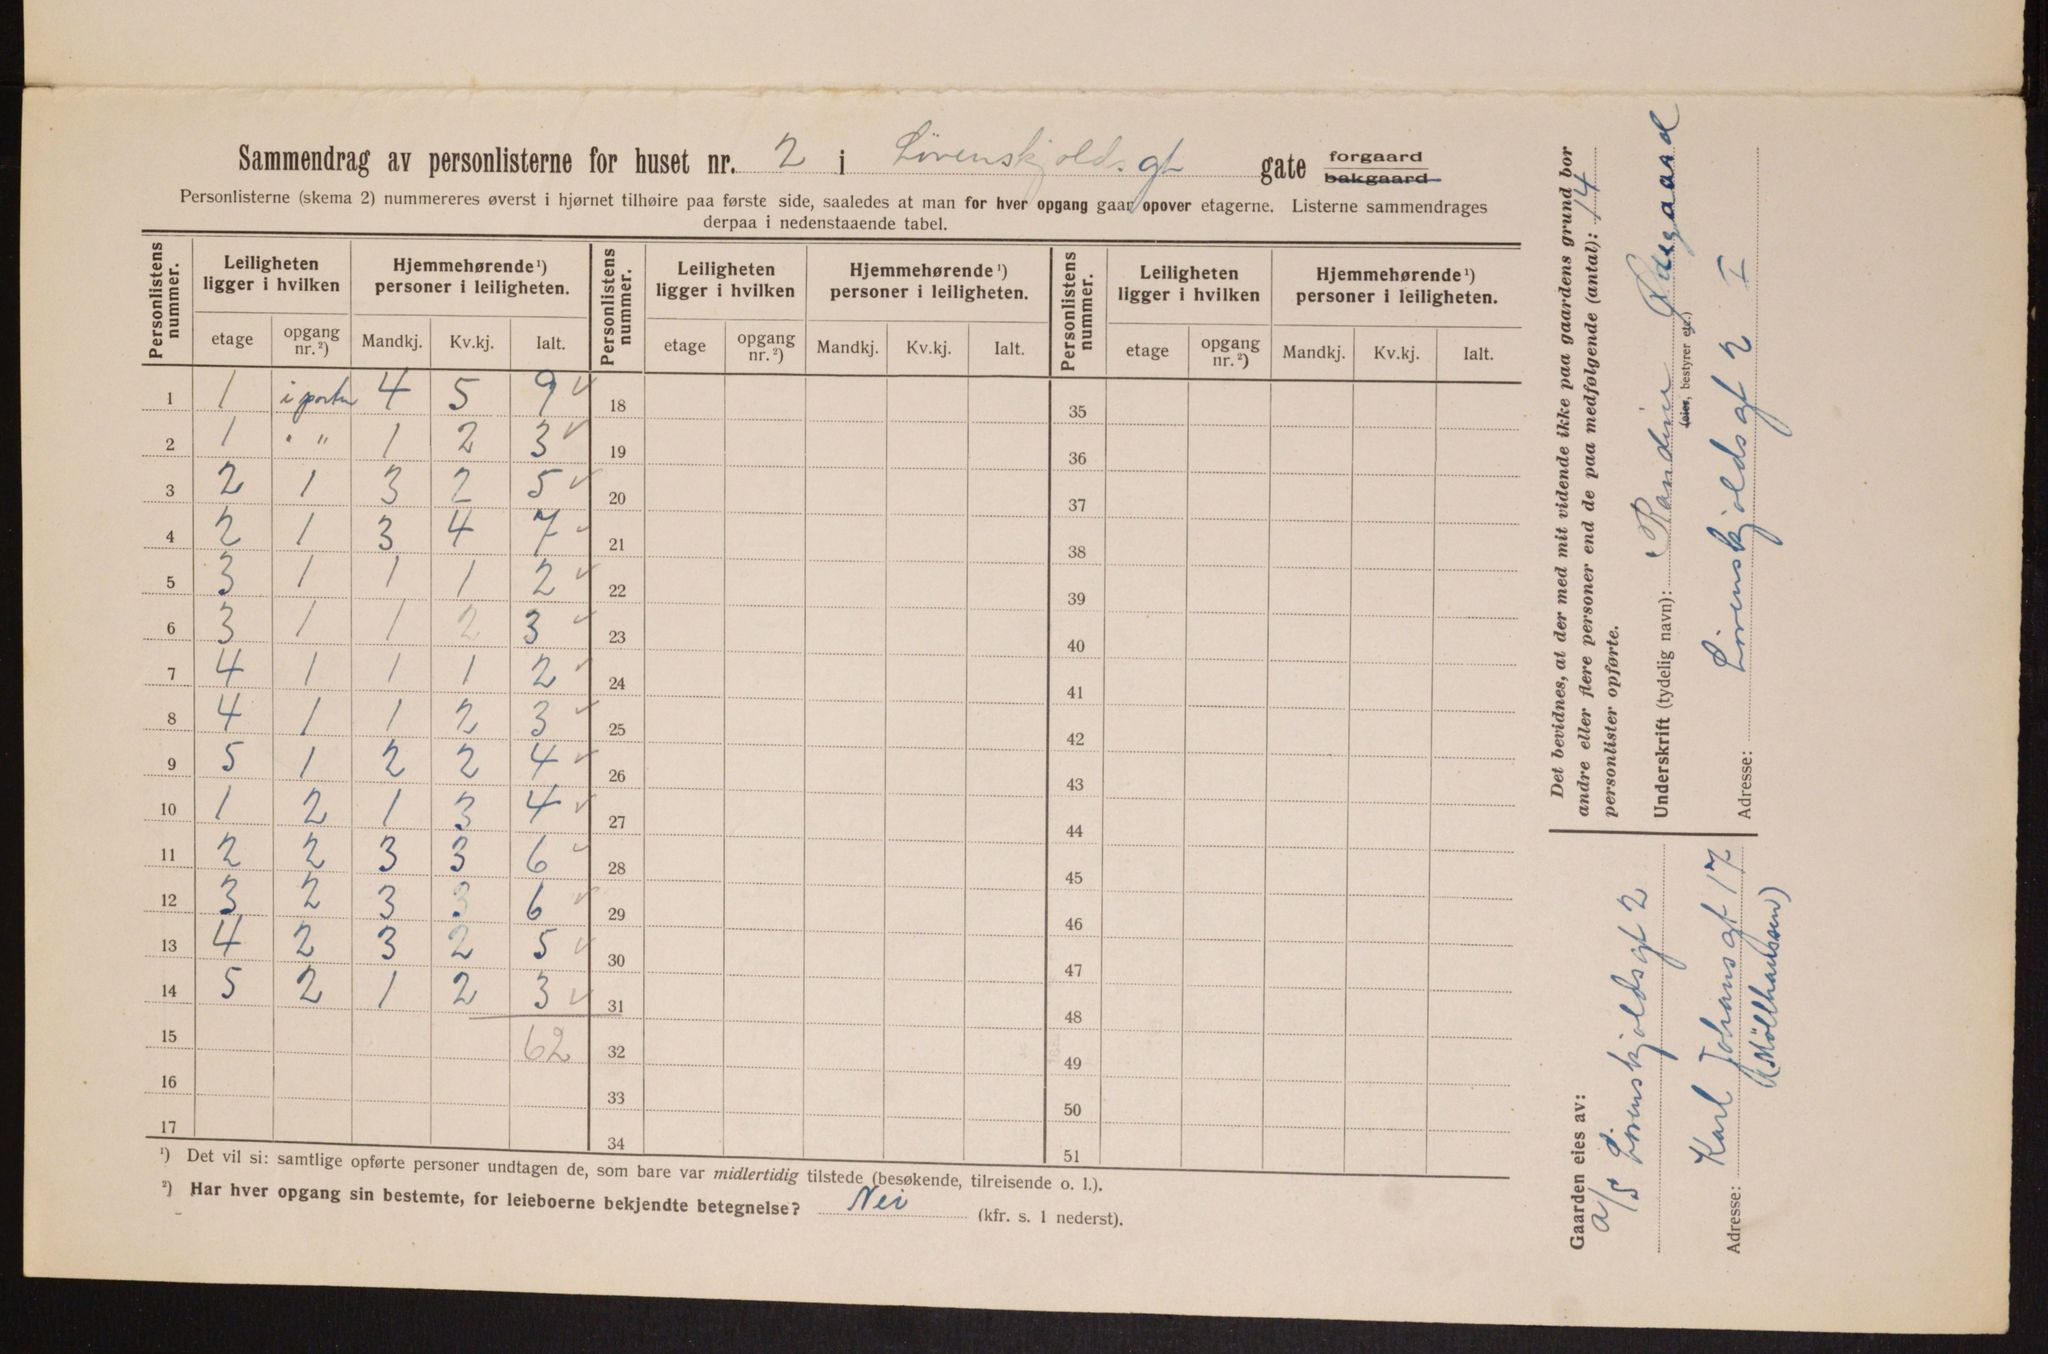 Sammendrag av personlisterne for huset nr. 2 i Løvenskjolds gt gate forgaard bakgaard
Personlisterne (skema 2) nummereres øverst i hjørnet tilhøire paa første side, saaledes at man for hver opgang gaar opover etagerne. Listerne sammendrages
derpaa i nedenstaaende tabel.
Personlistens nummer. Leiligheten ligger i hvilken Hjemmehørende¹) personer i leiligheten. Personlistens nummer. Leiligheten ligger i hvilken Hjemmehørende¹) personer i leiligheten. Personlistens nummer. Leiligheten ligger i hvilken Hjemmehørende¹) personer i leiligheten.
etage opgang nr.²) Mandkj. Kv.kj. Ialt. etage opgang nr.²) Mandkj. Kv.kj. Ialt. etage opgang nr.²) Mandkj. Kv.kj. Ialt.
1 1 i porten 4 5 9 ✓ 18 35
2 1 " " 1 2 3 ✓ 19 36
3 2 1 3 2 5 ✓ 20 37
4 2 1 3 4 7 ✓ 21 38
5 3 1 1 1 2 ✓ 22 39
6 3 1 1 2 3 ✓ 23 40
7 4 1 1 1 2 ✓ 24 41
8 4 1 1 2 3 ✓ 25 42
9 5 1 2 2 4 ✓ 26 43
10 1 2 1 3 4 ✓ 27 44
11 2 2 3 3 6 ✓ 28 45
12 3 2 3 3 6 ✓ 29 46
13 4 2 3 2 5 ✓ 30 47
14 5 2 1 2 3 ✓ 31 48
15 62 32 49
16 33 50
17 34 51
¹) Det vil si: samtlige opførte personer undtagen de, som bare var midlertidig tilstede (besøkende, tilreisende o. l.).
²) Har hver opgang sin bestemte, for leieboerne bekjendte betegnelse? Nei (kfr. s. 1 nederst).
Det bevidnes, at der med mit vidende ikke paa gaardens grund bor
andre eller flere personer end de paa medfølgende (antal): 14
personlister opførte.
Underskrift (tydelig navn): Randine Ødegaard
(eier, bestyrer etc.)
Adresse: Løvenskjoldsgt 2 I
Gaarden eies av:
A/S Løvenskjoldsgt 2
Adresse: Karl Johansgt 17
(Møllhausen)